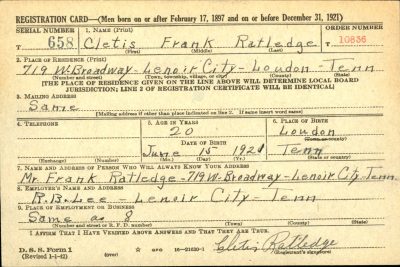 REGISTRATION CARD—(Men born on or after February 17, 1897 and on or before December 31, 1921)
SERIAL NUMBER 1. NAME (Print) ORDER NUMBER
T 658 Cletis Frank Ratledge 10836
2. PLACE OF RESIDENCE (Print)
719 W. Broadway - Lenoir City - Loudon - Tenn
(Number and street) (Town, township, village, or city) (County) (State)
[THE PLACE OF RESIDENCE GIVEN ON THE LINE ABOVE WILL DETERMINE LOCAL BOARD
JURISDICTION; LINE 2 OF REGISTRATION CERTIFICATE WILL BE IDENTICAL]
3. MAILING ADDRESS
Same
[Mailing address if other than place indicated on line 2. If same insert word same]
4. TELEPHONE 5. AGE IN YEARS 6. PLACE OF BIRTH
20 Loudon
DATE OF BIRTH (Town or county)
June 15 1921 Tenn
(Exchange) (Number) (Mo.) (Day) (Yr.) (State or country)
7. NAME AND ADDRESS OF PERSON WHO WILL ALWAYS KNOW YOUR ADDRESS
Mr. Frank Ratledge - 719 W. Broadway - Lenoir City, Tenn
8. EMPLOYER'S NAME AND ADDRESS
R. B. Lee - Lenoir City - Tenn
9. PLACE OF EMPLOYMENT OR BUSINESS
Same as 8
(Number and street or R. F. D. number) (Town) (County) (State)
I AFFIRM THAT I HAVE VERIFIED ABOVE ANSWERS AND THAT THEY ARE TRUE.
D. S. S. Form 1 (over) ☆ GPO 16—21630-1 Cletis Ratledge
(Revised 1-1-42) (Registrant's signature)